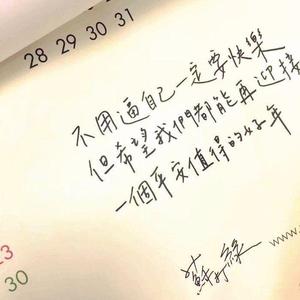 28 29 30 31
不用逼自己一定要快樂
但希望我們都能再迎接
一個平安值得的好年
www.
23
30